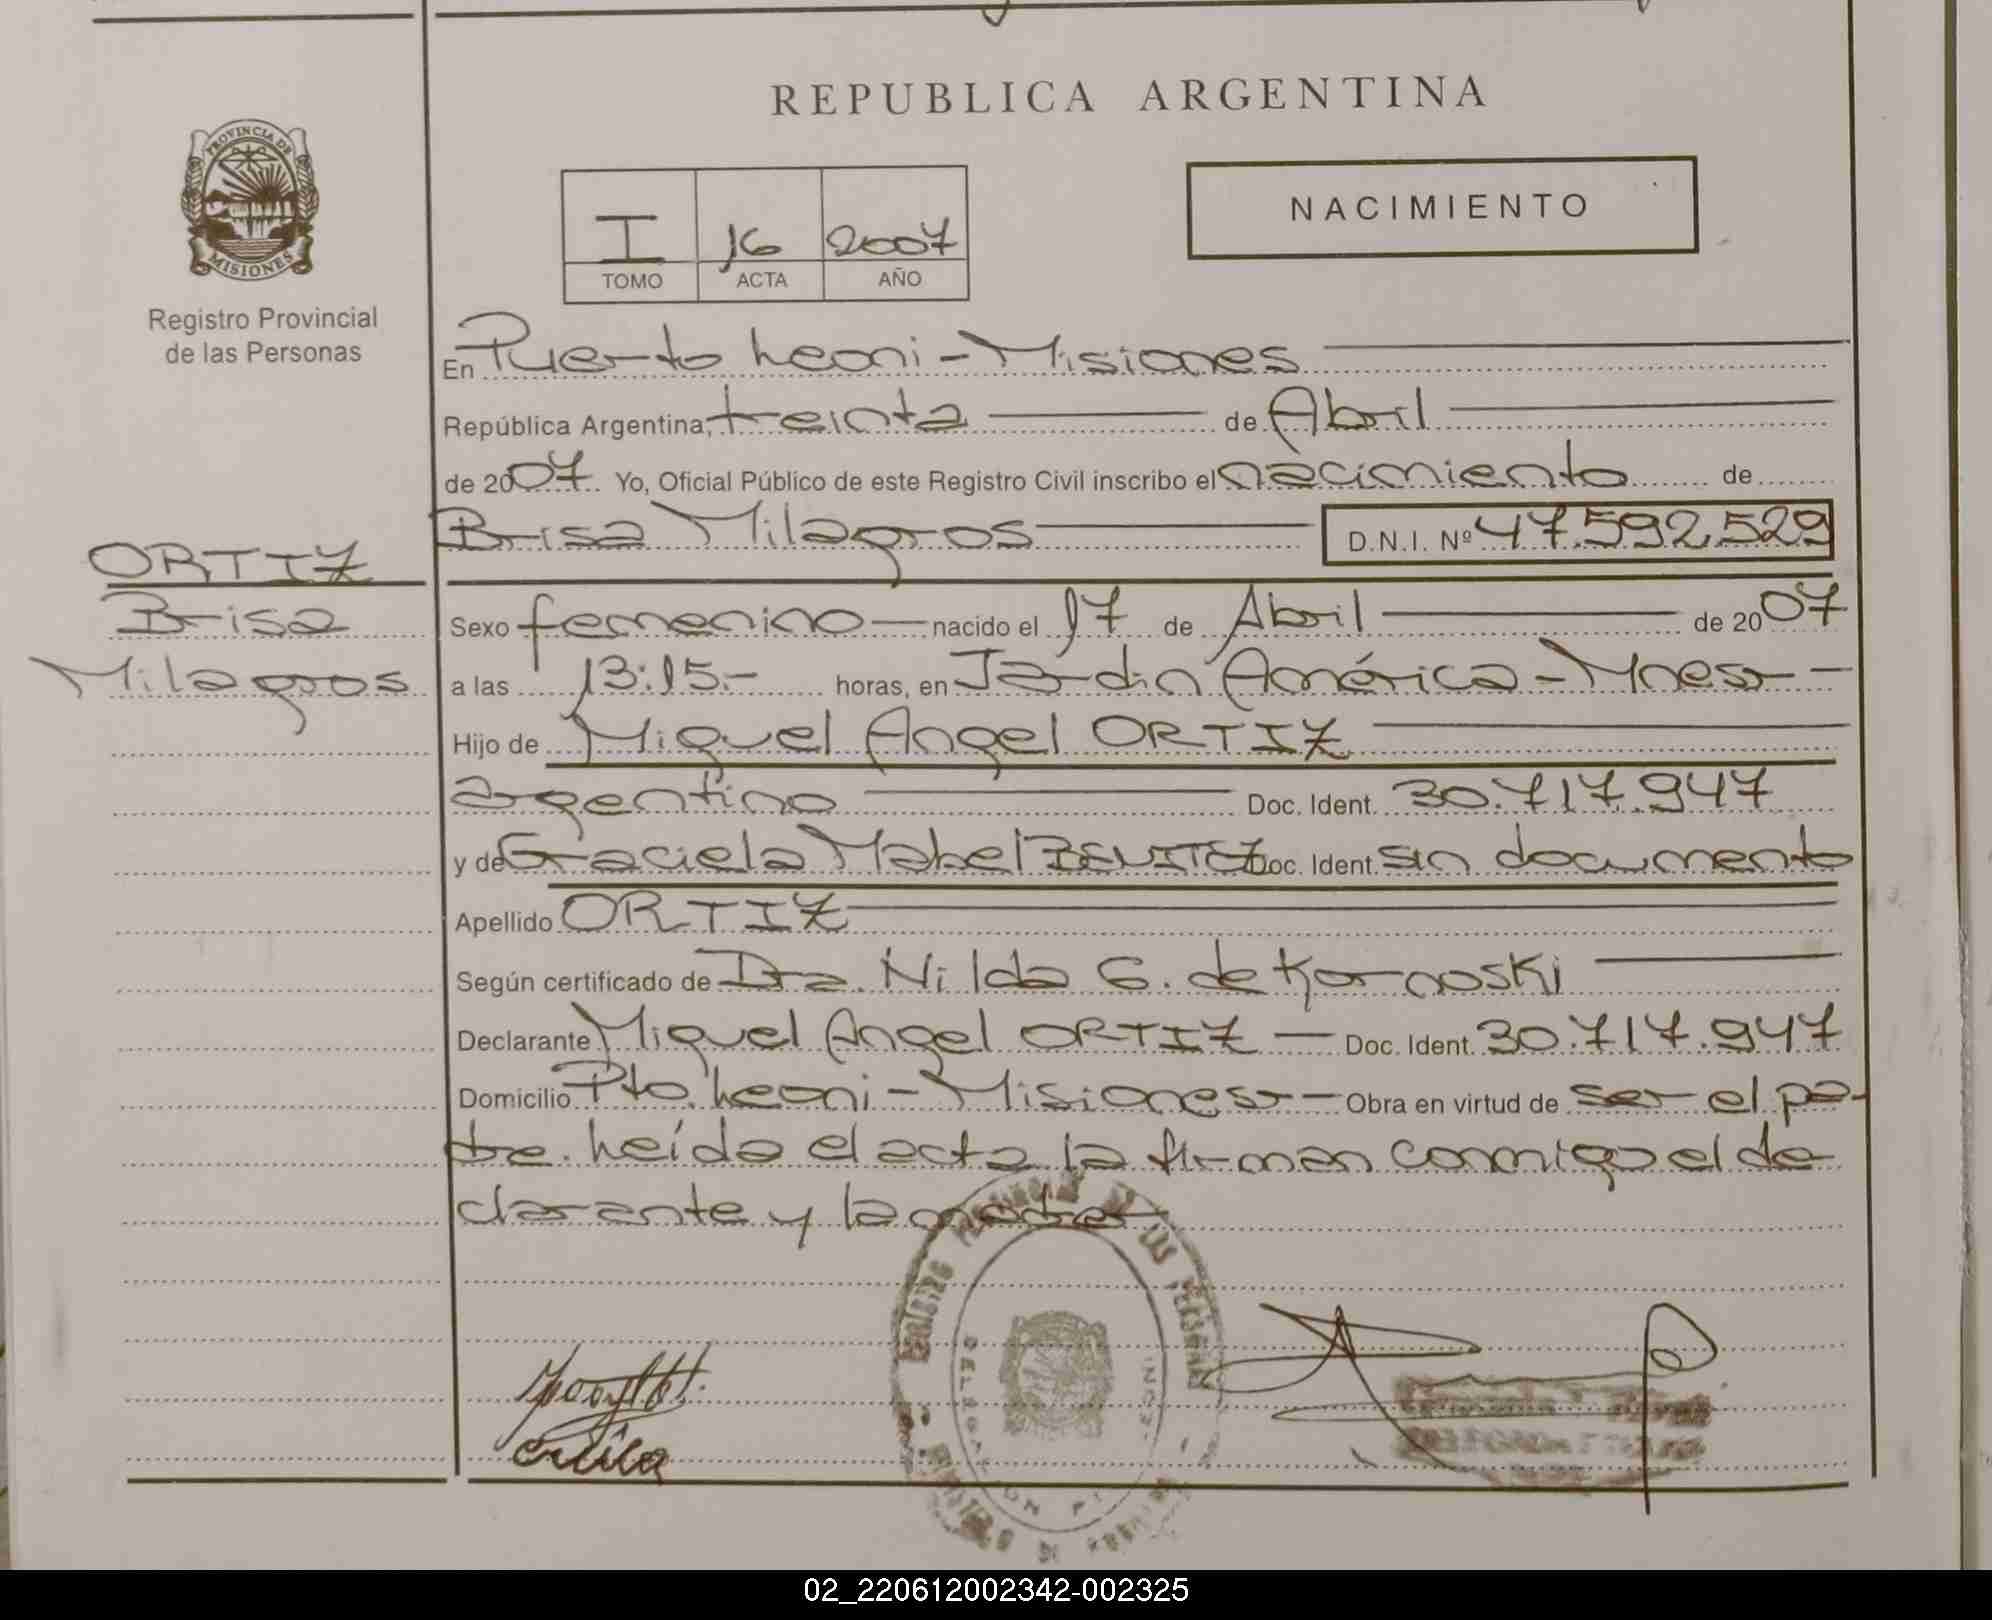 REPUBLICA ARGENTINA
PROVINCIA DE
MISIONES
Registro Provincial
de las Personas
I 16 2007
TOMO ACTA AÑO
NACIMIENTO
En Puerto Leoni - Misiones
República Argentina, treinta de Abril
de 2007 Yo, Oficial Público de este Registro Civil inscribo el nacimiento de
Brisa Milagros D.N.I. Nº 47.592.529
ORTIZ
Brisa
Milagros
Sexo femenino nacido el 17 de Abril de 2007
a las 13:15.- horas, en Jardín América - Mnes. -
Hijo de Miguel Angel ORTIZ
argentino Doc. Ident. 30.717.947
y de Graciela Mabel BENITEZ Doc. Ident. sin documento
Apellido ORTIZ
Según certificado de Dra. Nilda G. de Kornoski
Declarante Miguel Angel ORTIZ - Doc. Ident. 30.717.947
Domicilio Pto. Leoni - Misiones - Obra en virtud de ser el pa-
dre. Leída el acta la firman conmigo el de
clarante y la madre
02_220612002342-002325